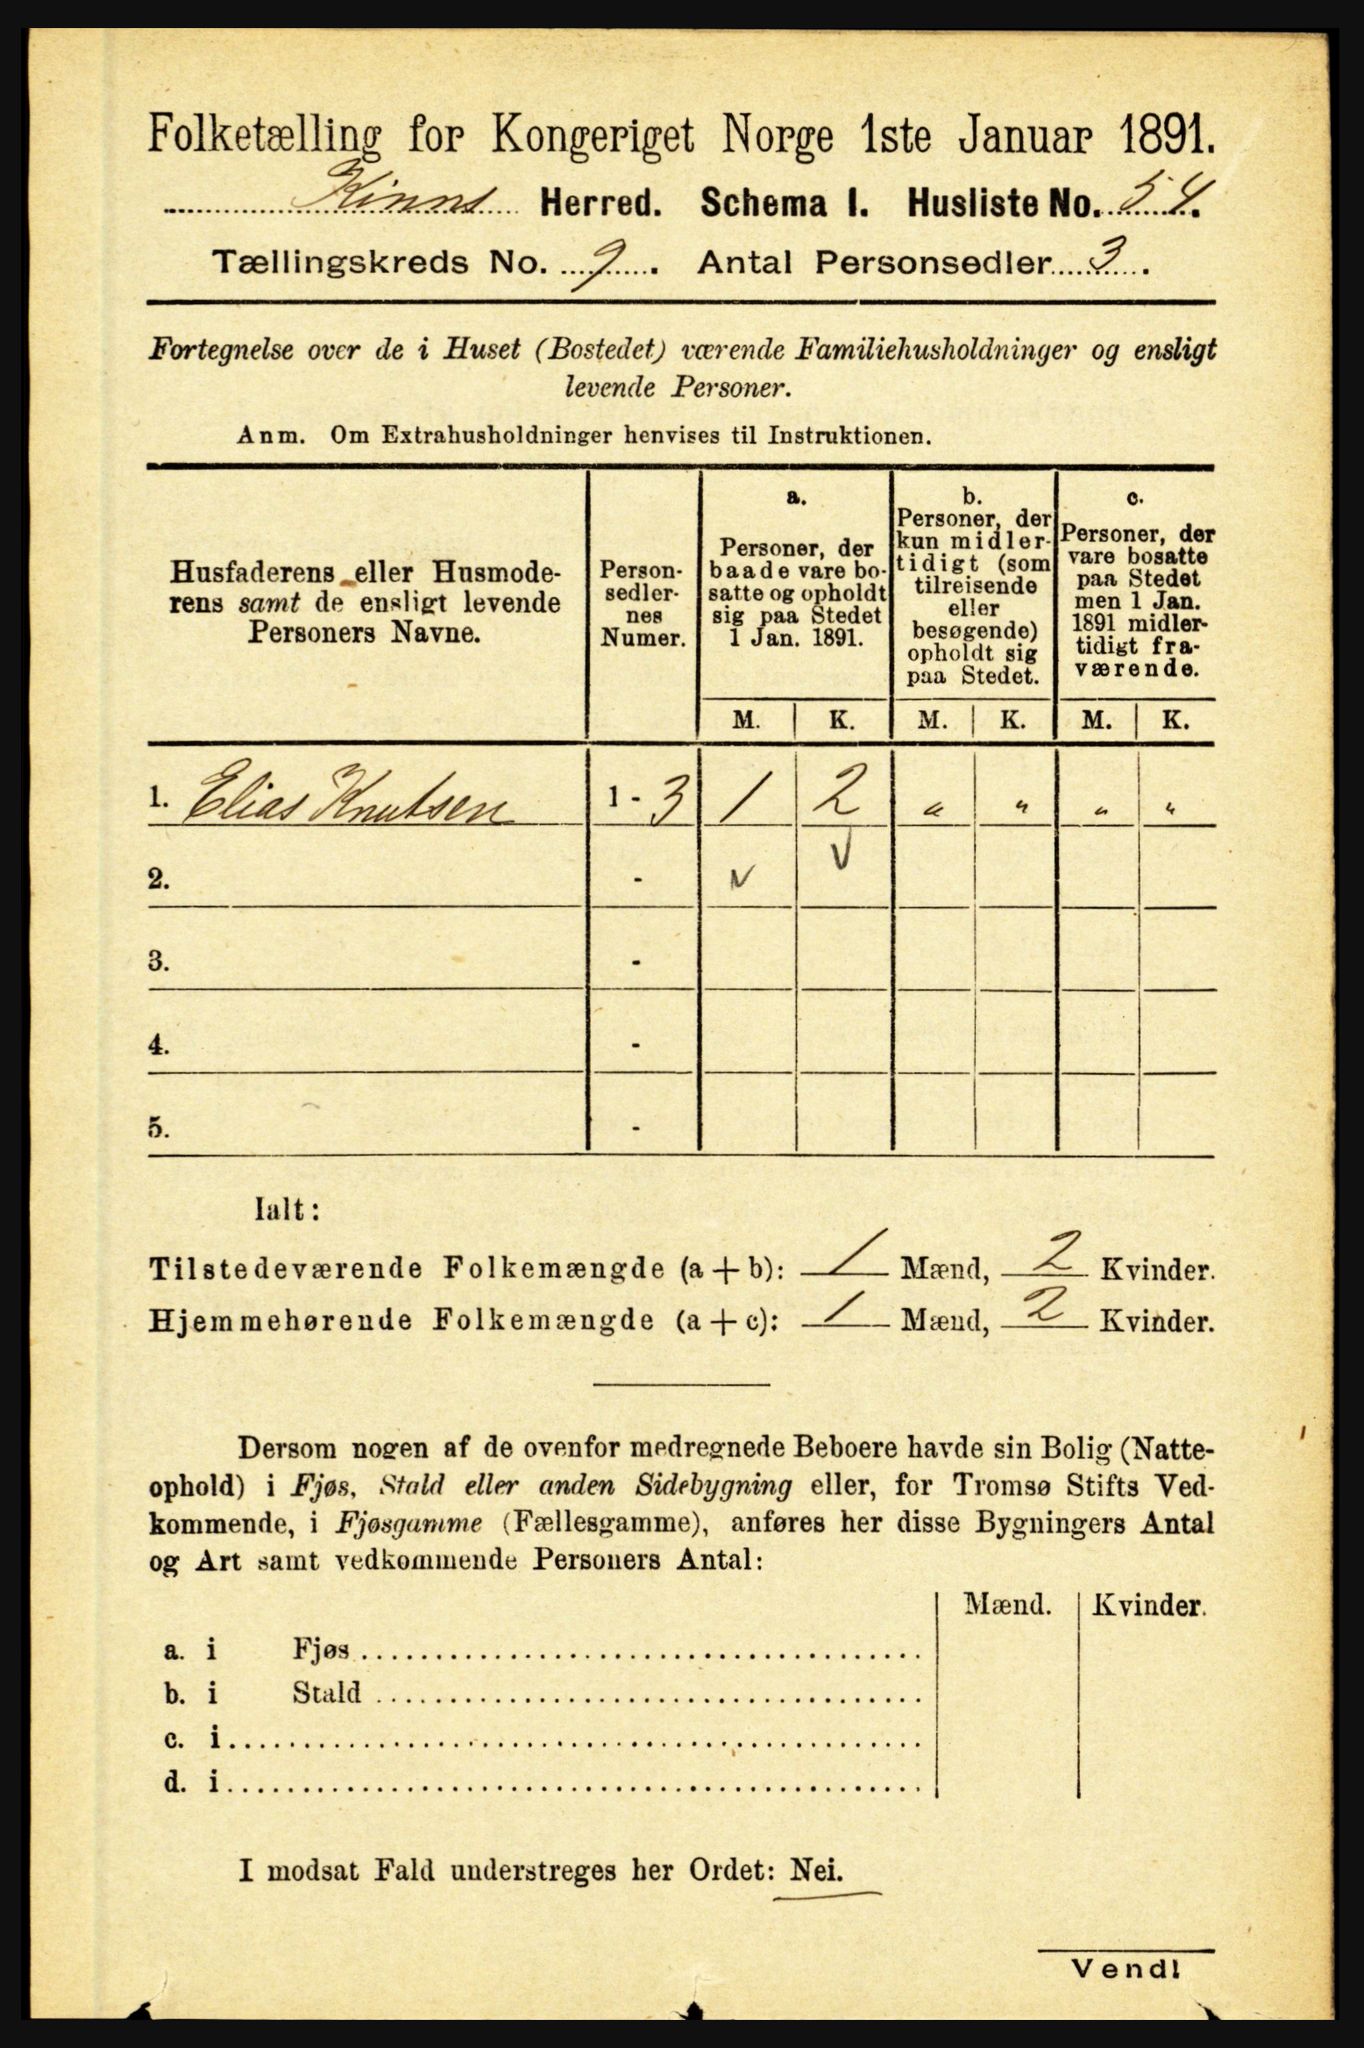 Folketælling for Kongeriget Norge 1ste Januar 1891.
Kinns Herred. Schema I. Husliste No. 54.
Tællingskreds No. 9. Antal Personsedler 3.
Fortegnelse over de i Huset (Bostedet) værende Familiehusholdninger og ensligt
levende Personer.
Anm. Om Extrahusholdninger henvises til Instruktionen.
Husfaderens eller Husmode-
rens samt de ensligt levende
Personers Navne.
Person-
sedler-
nes
Numer.
a.
Personer, der
baade vare bo-
satte og opholdt
sig paa Stedet
1 Jan. 1891.
b.
Personer, der
kun midler-
tidigt (som
tilreisende
eller
besøgende)
opholdt sig
paa Stedet.
c.
Personer, der
vare bosatte
paa Stedet
men 1 Jan.
1891 midler-
tidigt fra-
værende.
M. K. M. K. M. K.
1. Elias Knutsen 1 - 3 1 2 " " " "
2. -
3. -
4. -
5. -
Ialt:
Tilstedeværende Folkemængde (a + b): 1 Mænd, 2 Kvinder.
Hjemmehørende Folkemængde (a + c): 1 Mænd, 2 Kvinder.
Dersom nogen af de ovenfor medregnede Beboere havde sin Bolig (Natte-
ophold) i Fjøs, Stald eller anden Sidebygning eller, for Tromsø Stifts Ved-
kommende, i Fjøsgamme (Fællesgamme), anføres her disse Bygningers Antal
og Art samt vedkommende Personers Antal:
Mænd. Kvinder.
a. i Fjøs
b. i Stald
c. i
d. i
I modsat Fald understreges her Ordet: Nei.
Vend!